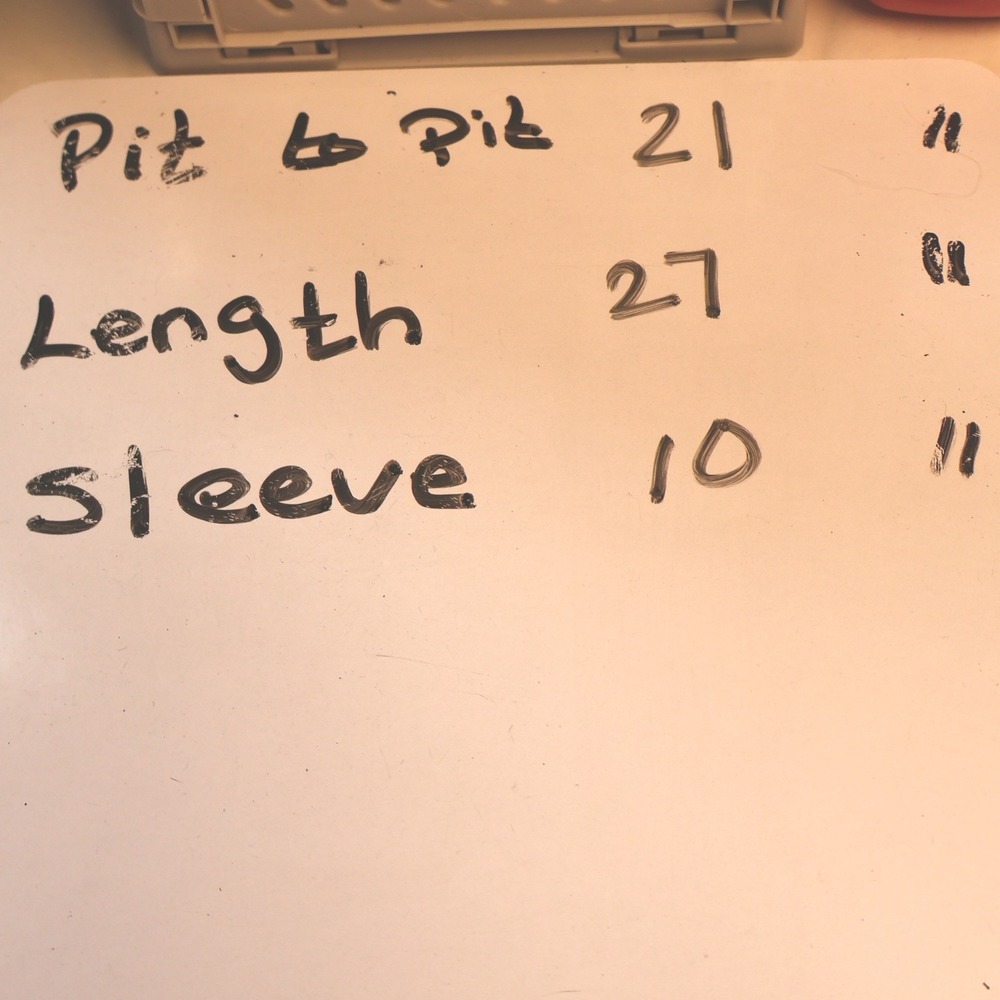 Pit to Pit 21 "
Length 27 "
Sleeve 10 "